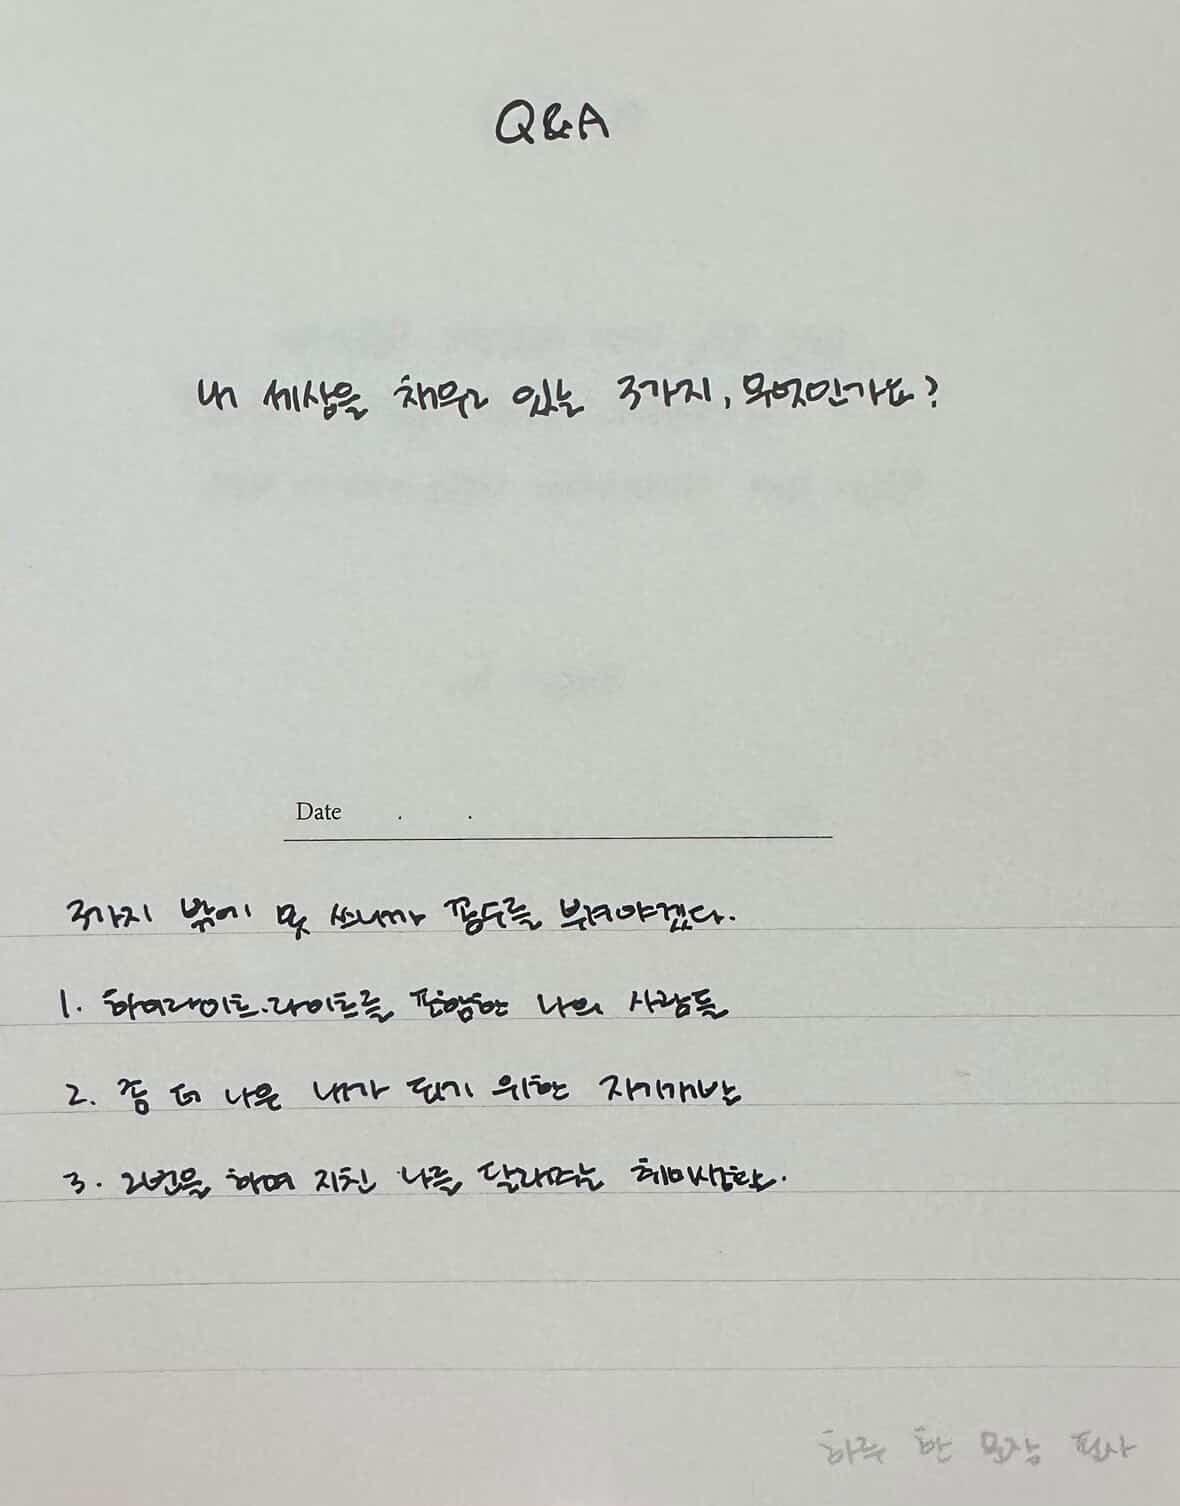 Q&A
내 세상을 채우고 있는 3가지, 무엇인가요?
Date . .
3가지 밖에 못 쓰니까 꼼수를 부려야겠다.
1. 하이라이트.라이트를 포함한 나의 사람들
2. 좀 더 나은 내가 되기 위한 자기개발
3. 2번을 하며 지친 나를 달래주는 취미생활.
하루 한 문장 필사